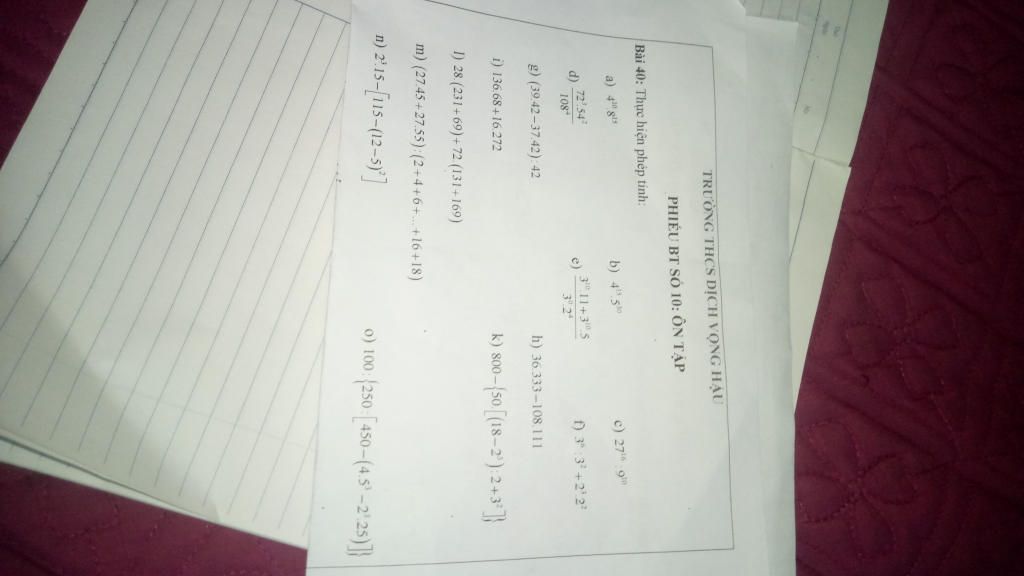 TRƯỜNG THCS DỊCH VỌNG HẬU
PHIẾU BT SỐ 10: ÔN TẬP
Bài 40: Thực hiện phép tính:
a) 4¹⁰.8¹⁵ b) 4¹⁵.5³⁰ c) 27¹⁶ : 9¹⁰
d) \frac{72³.54²}{108⁴} e) \frac{3¹⁰.11+3¹⁰.5}{3⁹.2⁴} f) 3⁶ : 3² + 2³.2²
g) (39.42−37.42) : 42 h) 36.333−108.111
i) 136.68+16.272 k) 800−{50.[(18−2³) : 2+3²]}
l) 28.(231+69)+72.(131+169)
m) (27.45+27.55) : (2+4+6+...+16+18)
n) 2³.15−[115−(12−5)²] o) 100 : {250 : [450−(4.5³−2³.25)]}